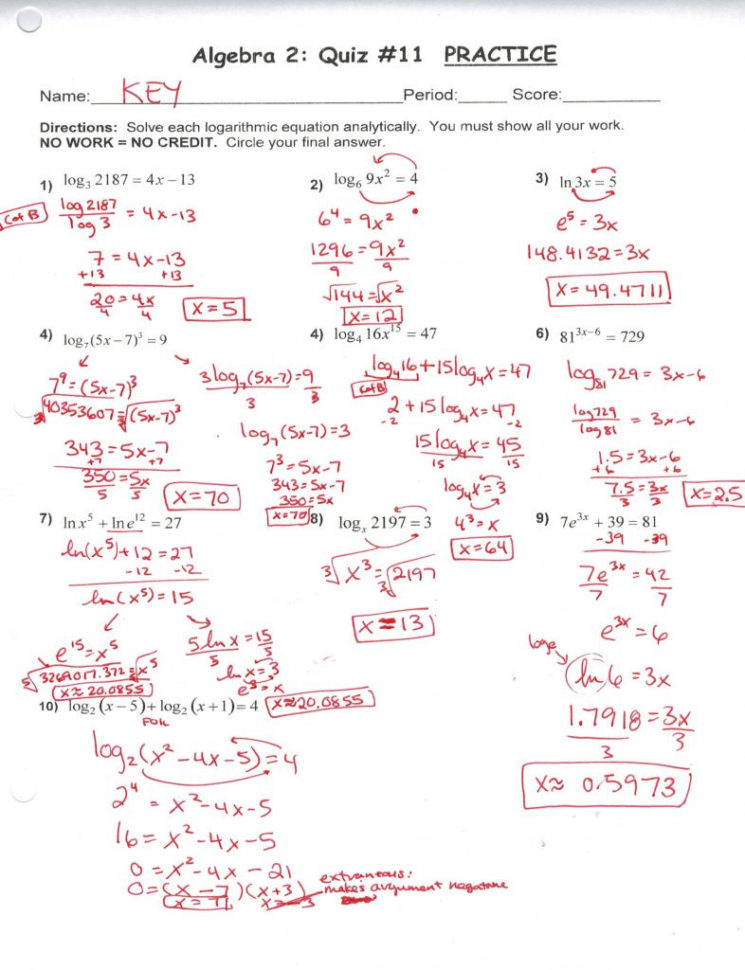 Algebra 2: Quiz #11 PRACTICE
Name: KEY Period: Score:
Directions: Solve each logarithmic equation analytically. You must show all your work.
NO WORK = NO CREDIT. Circle your final answer.
1) log₃ 2187 = 4x − 13
CofB
log 2187 / log 3 = 4x−13
7 = 4x−13
+13 +13
20/4 = 4x/4
x = 5
2) log₆ 9x² = 4
6⁴ = 9x²
1296/9 = 9x²/9
√144 = √x²
x = 12
3) ln 3x = 5
e⁵ = 3x
148.4132 = 3x
x = 49.4711
4) log₇(5x − 7)³ = 9
7⁹ = (5x−7)³
³√40353607 = ³√(5x−7)³
343 = 5x−7
+7 +7
350/5 = 5x/5
x = 70
3log₇(5x−7)/3 = 9/3
log₇(5x−7) = 3
7³ = 5x−7
343 = 5x−7
350 = 5x
x = 70
4) log₄ 16x¹⁵ = 47
log₄16 + 15log₄x = 47
CofB
2 + 15log₄x = 47
−2 −2
15log₄x/15 = 45/15
log₄x = 3
4³ = x
x = 64
6) 81³ˣ⁻⁶ = 729
log₈₁ 729 = 3x−6
log729/log81 = 3x−6
1.5 = 3x−6
+6 +6
7.5/3 = 3x/3
x = 2.5
7) ln x⁵ + ln e¹² = 27
ln(x⁵) + 12 = 27
−12 −12
ln(x⁵) = 15
e¹⁵ = x⁵
⁵√3269017.372 = x⁵
x ≈ 20.0855
5lnx/5 = 15/5
lnx = 3
e³ = x
x ≈ 20.0855
8) logₓ 2197 = 3
³√x³ = ³√2197
x = 13
9) 7e³ˣ + 39 = 81
−39 −39
7e³ˣ/7 = 42/7
e³ˣ = 6
logₑ
ln 6 = 3x
1.7918/3 = 3x/3
x ≈ 0.5973
10) log₂(x − 5) + log₂(x + 1) = 4
FOIL
log₂(x² − 4x − 5) = 4
2⁴ = x² − 4x − 5
16 = x² − 4x − 5
0 = x² − 4x − 21
0 = (x − 7)(x + 3)
x = 7, x = −3
extraneous:
makes argument negative